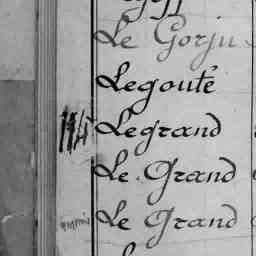 Le Gorju
Legouté
Legrand
Le Grand
Le Grand